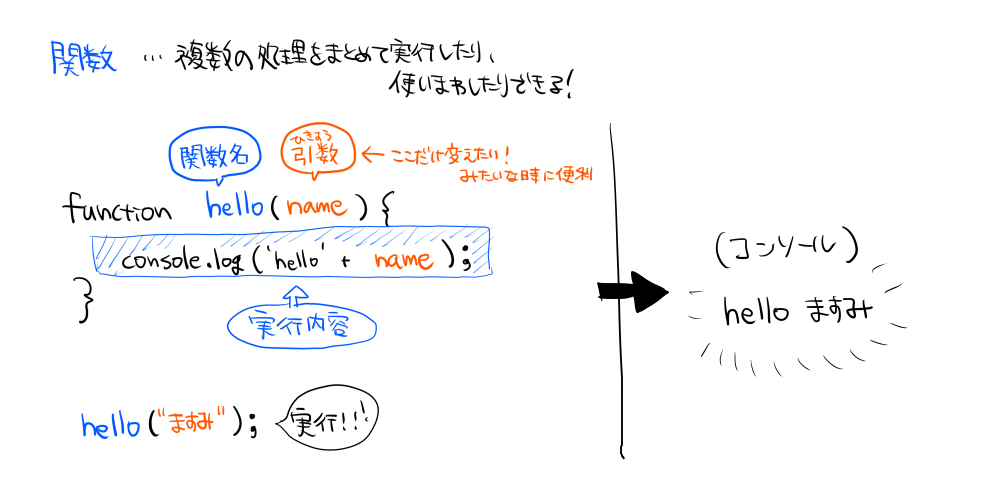 関数 … 複数の処理をまとめて実行したり、
使いまわしたりできる!
関数名
ひきすう
引数
← ここだけ変えたい!
みたいな時に便利
function hello(name) {
console.log('hello' + name);
}
実行内容
hello("ますみ");
実行!!!
(コンソール)
hello ますみ